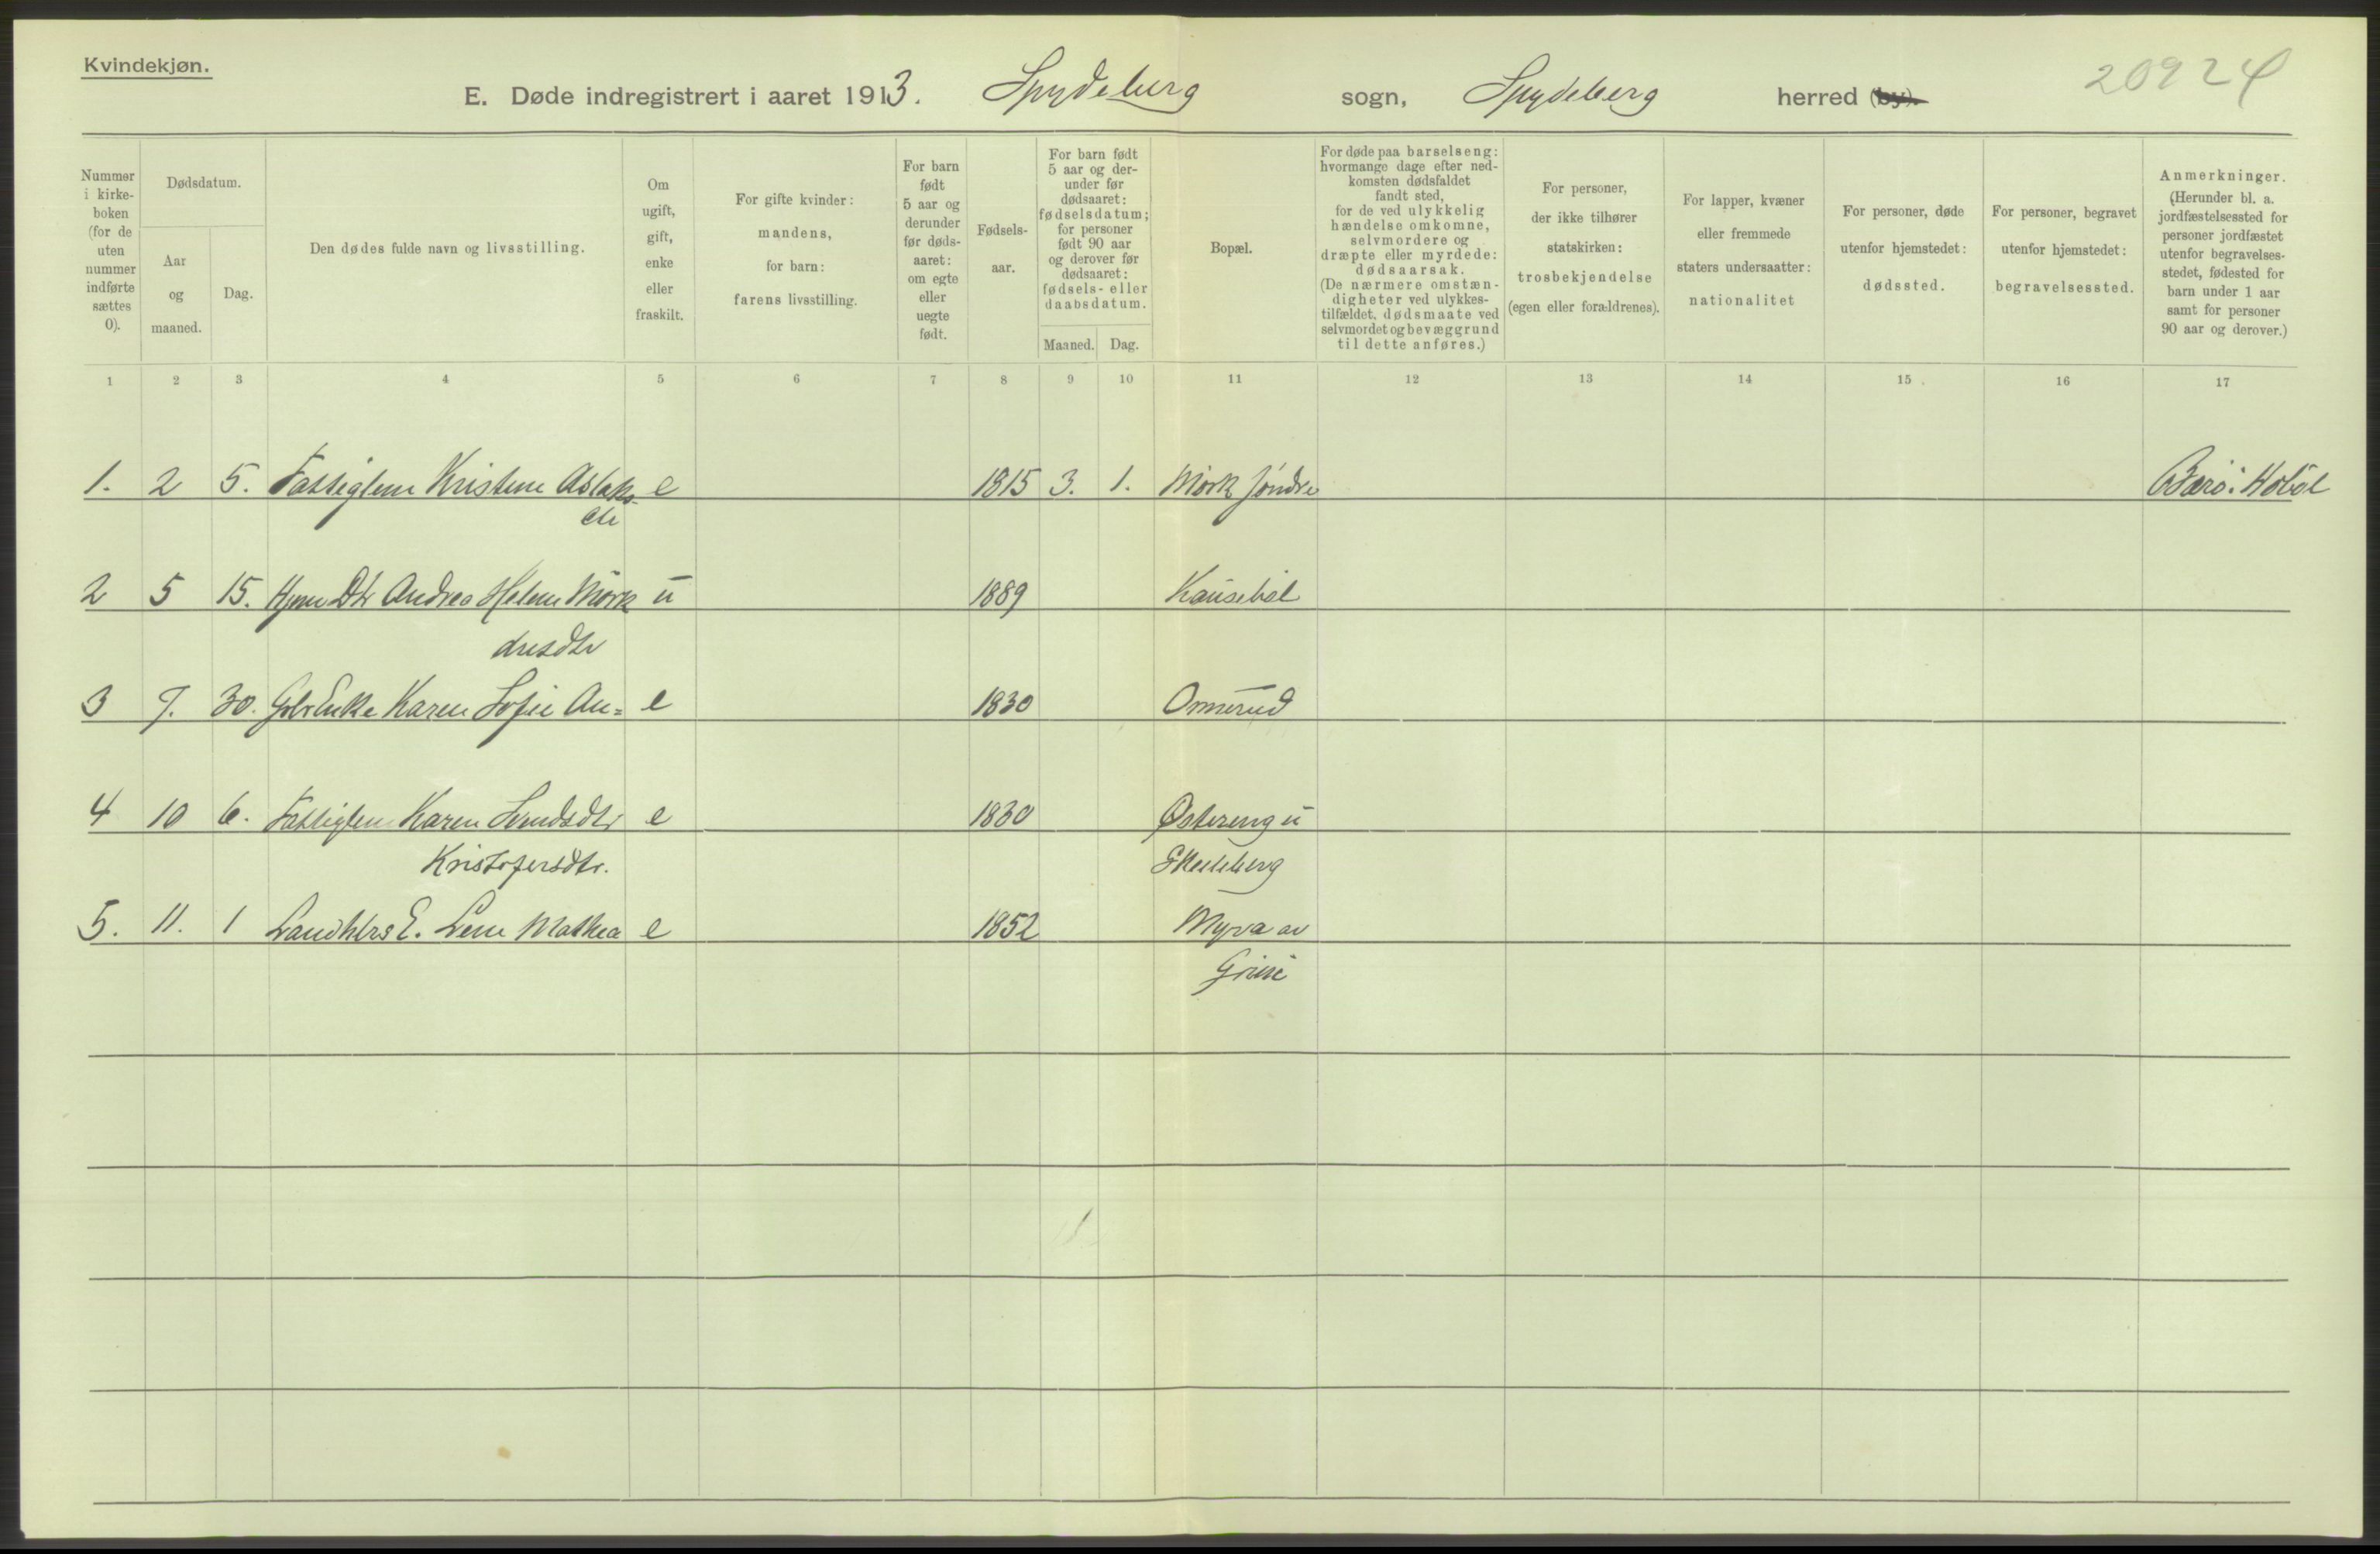 Kvindekjøn.
E. Døde indregistrert i aaret 1913. Spydeberg sogn, Spydeberg herred (by).
20924
Nummer i kirkeboken (for de uten nummer indførte sættes 0).
Dødsdatum.
Aar og maaned.
Dag.
Den dødes fulde navn og livsstilling.
Om ugift, gift, enke eller fraskilt.
For gifte kvinder: mandens, for barn: farens livsstilling.
For barn født 5 aar og derunder før dødsaaret: om egte eller uegte født.
Fødselsaar.
For barn født 5 aar og derunder før dødsaaret: fødselsdatum; for personer født 90 aar og derover før dødsaaret: fødsels- eller daabsdatum.
Maaned.
Dag.
Bopæl.
For døde paa barselseng: hvormange dage efter nedkomsten dødsfaldet fandt sted, for de ved ulykkelig hændelse omkomne, selvmordere og dræpte eller myrdede: dødsaarsak. (De nærmere omstændigheter ved ulykkestilfældet, dødsmaate ved selvmordet og bevæggrund til dette anføres.)
For personer, der ikke tilhører statskirken: trosbekjendelse (egen eller forældrenes).
For lapper, kvæner eller fremmede staters undersaatter: nationalitet
For personer, døde utenfor hjemstedet: dødssted.
For personer, begravet utenfor hjemstedet: begravelsessted.
Anmerkninger. (Herunder bl. a. jordfæstelsessted for personer jordfæstet utenfor begravelsesstedet, fødested for barn under 1 aar samt for personer 90 aar og derover.)
1 2 3 4 5 6 7 8 9 10 11 12 13 14 15 16 17
1. 2 5. Fattiglem Kristine Aslaks- e 1815 3. 1. Mørk søndre Hobøl
2 5 15. Hjem Dtr Andrea Helene Mørk u 1889
3 7. 30. Enke Karen Sofie An= e 1830
4 10 6. Fattiglem Karen e 1830 Østereng u
Kristofersdtr. Skulleberg
5. 11. 1 E. Lene Mathea e 1852 Myra av